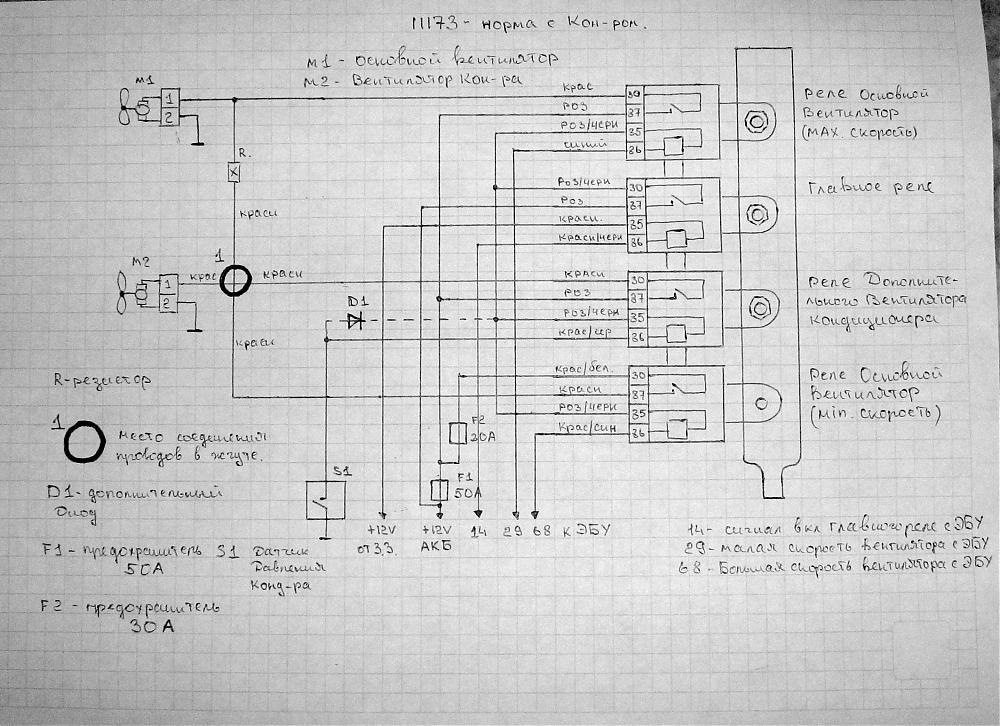 11173 - норма с Кон-ром.
M1 - Основной вентилятор
M2 - Вентилятор Кон-ра
M1
1
2
R.
красч
1
M2
крас
красч
1
2
красч
D1
крас
роз
роз/черн
синий
30
87
85
86
Реле Основной
Вентилятор
(MAX. скорость)
роз/черн
роз
красч.
красч/черн
30
87
85
86
Главное реле
красч
роз
роз/черн
крас/сер
30
87
85
86
Реле Дополните-
льного Вентилятора
кондиционера
крас/бел.
красч
роз/черн
крас/син
30
87
85
86
Реле Основной
Вентилятор
(Min. скорость)
F2
30A
F1
50A
S1
+12V
от З.З.
+12V
АКБ
14
29
68
к ЭБУ
R-резистор
1
место соединения
проводов в жгуте.
D1 - дополнительный
Диод
F1 - предохранитель
50A
S1 Датчик
Давления
Конд-ра
F2 - предохранитель
30A
14 - сигнал вкл главного реле с ЭБУ
29 - малая скорость вентилятора с ЭБУ
68 - Большая скорость вентилятора с ЭБУ